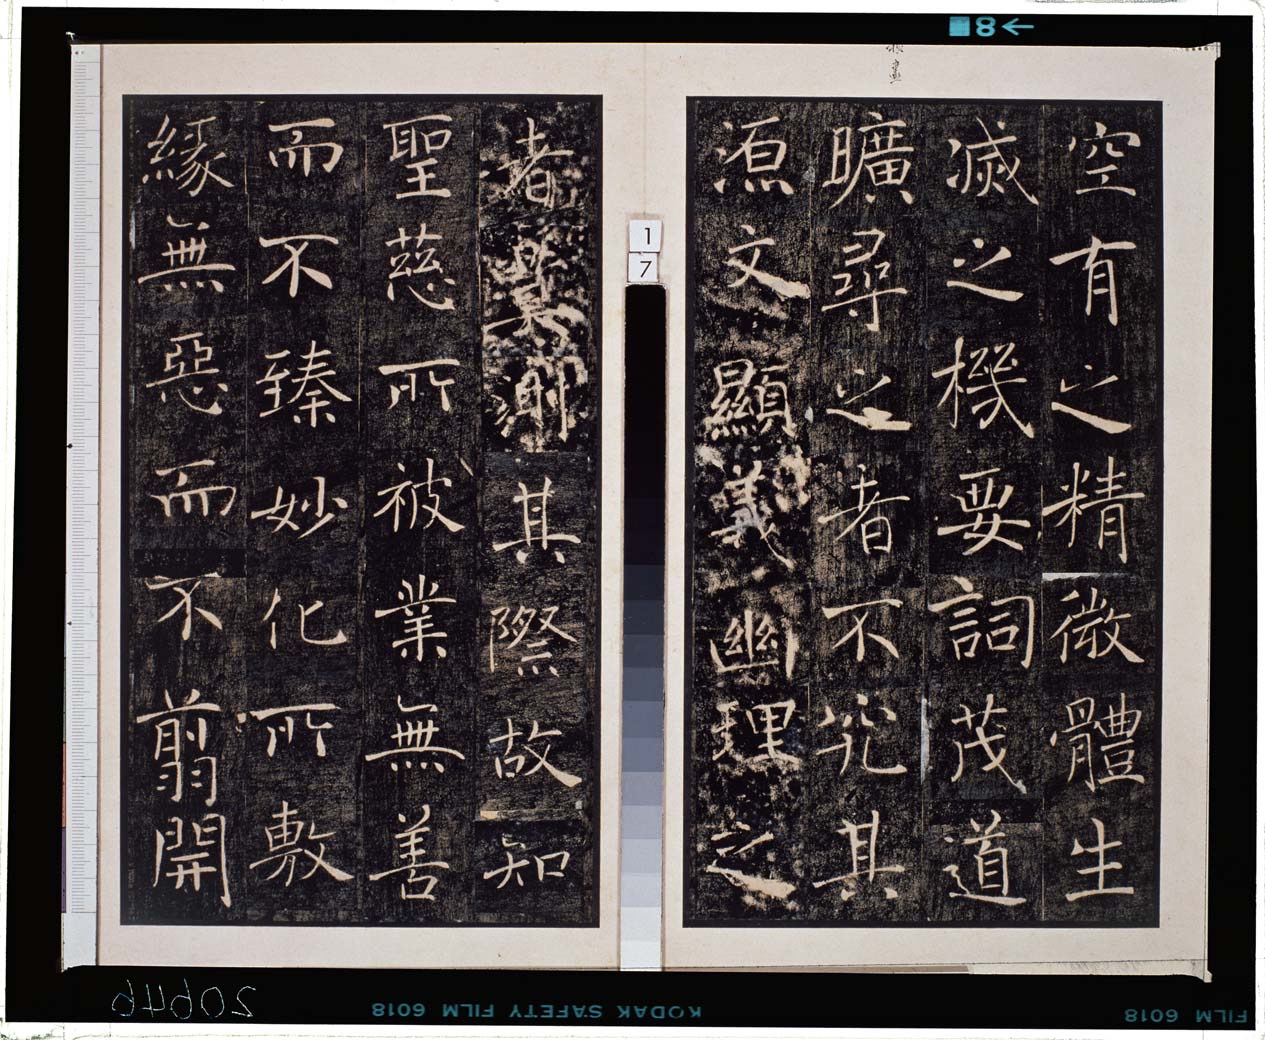 空有之精微體生
滅之機要詞茂道
曠尋之者不究其
源文顯義幽理之
者莫測其際故知
聖慈所被業無善
而不臻妙化所敷
緣無惡而不翦開
1
7
8
20646
KODAK SAFETY FILM 6018
FILM 6018